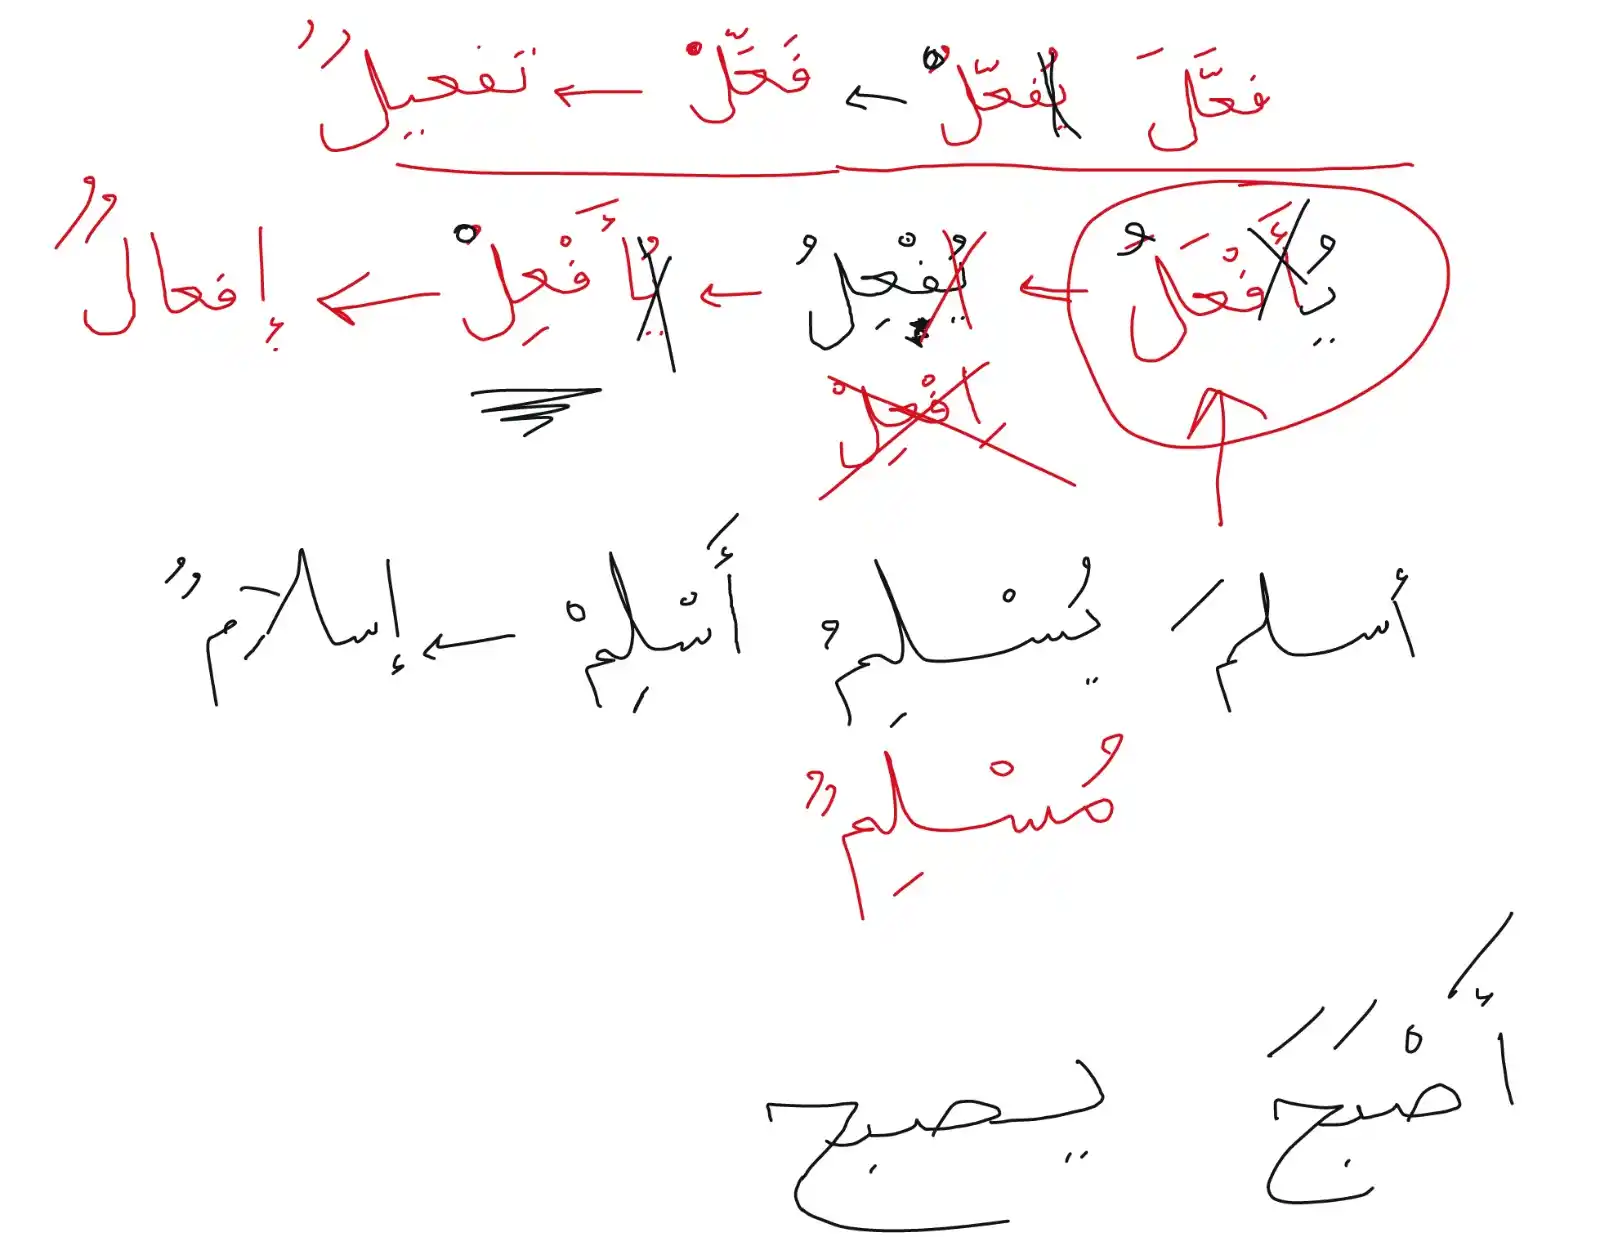 فعَّلَ يُفعّلْ ← فَعَّلْ ← تفعيلٌ
يُأَفْعَلُ ← يُفْعِلُ ← يُأَفْعِلْ ← إفعالٌ
افْعِلْ
أسلمَ يُسْلِمُ أَسْلِمْ ← إسلامٌ
مُسْلِمٌ
أَصْبَحَ يصبح